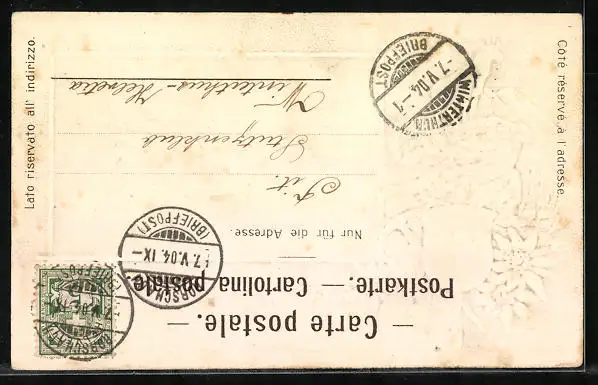 — Carte postale. —
Postkarte. — Cartolina postale
Nur für die Adresse.
Tit.
Schützenklub
Winterthur-Helvetia
Côté réservé à l'adresse.
Lato riservato all' indirizzo.
(BRIEFPOST)
-7.V.04.IX-
WINTERTHUR
-7.V.04.-1
(BRIEFPOST)